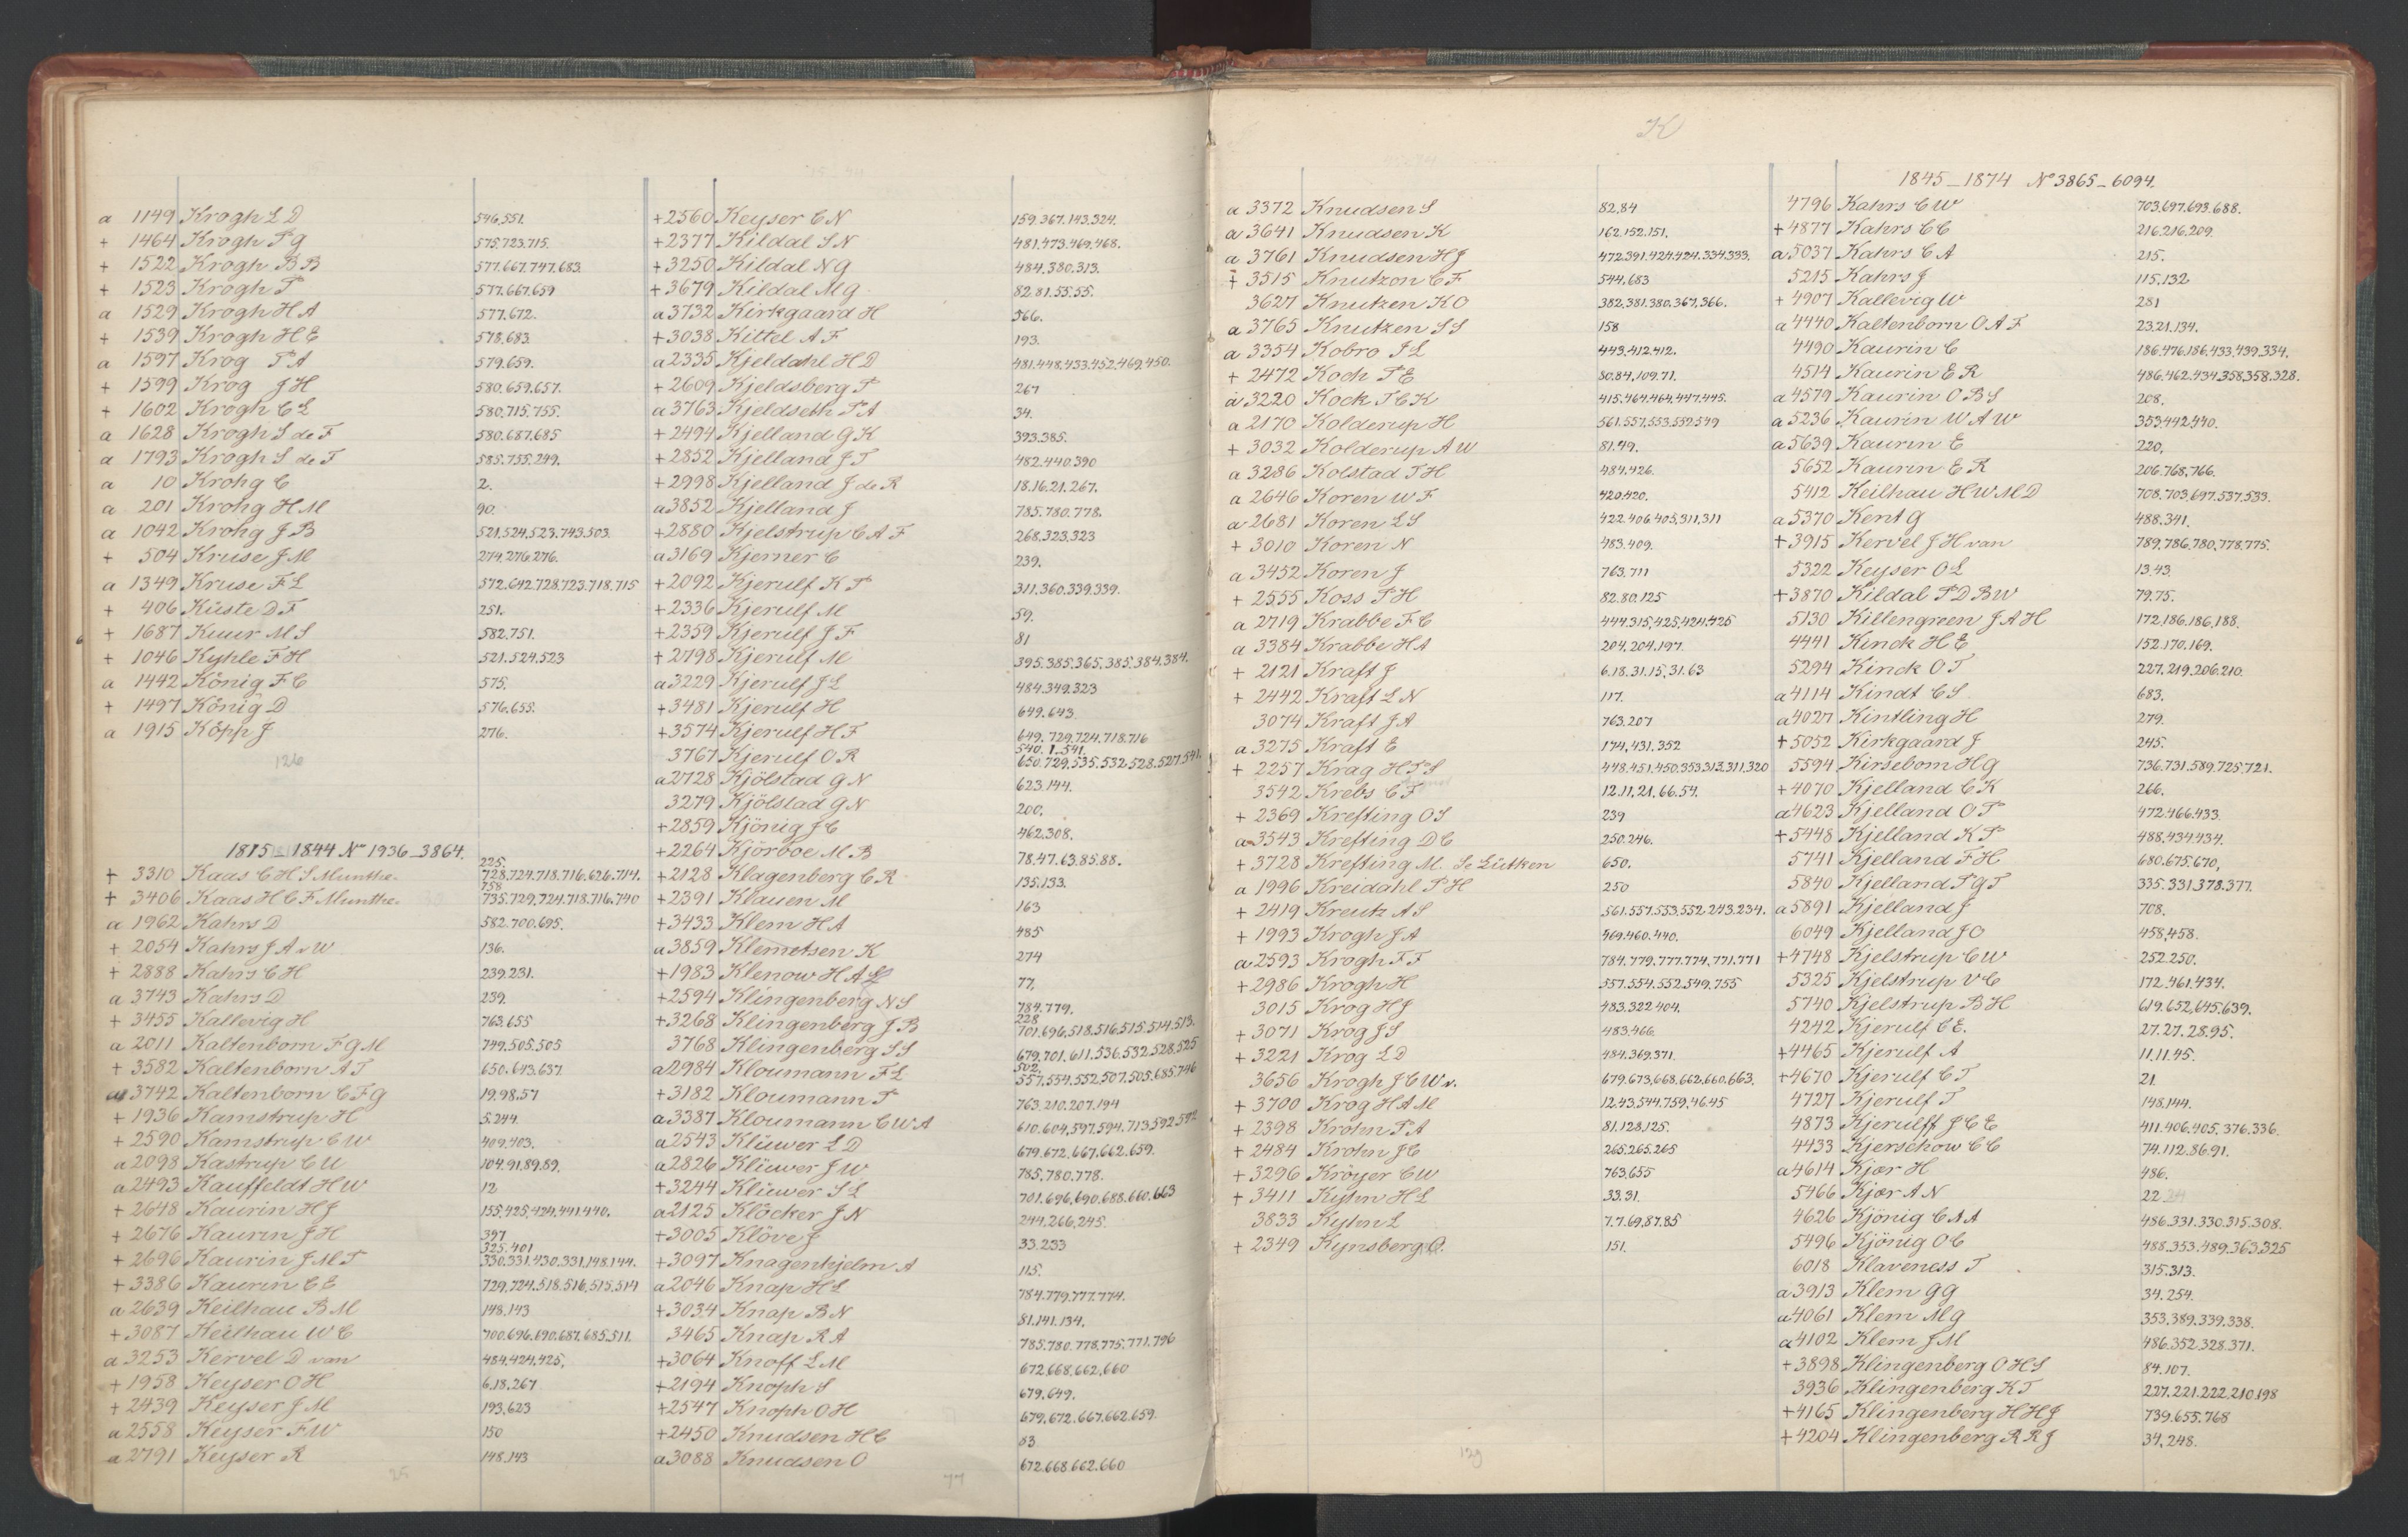 a 1149 Krogh L D 546.551.
+ 1464 Krogh P G 575.723.715.
+ 1522 Krogh B B 577.667.747.683.
+ 1523 Krogh P 577.667.659
a 1529 Krogh H A 577.672.
+ 1539 Krogh H E 578.683.
a 1597 Krog P A 579.659.
+ 1599 Krog J H 580.659.657.
+ 1602 Krogh C L 580.715.755.
a 1628 Krogh S de F 580.687.685
a 1793 Krogh S de F 585.755.249.
a 10 Krohg C 2.
a 201 Krohg H M 90.
a 1042 Krohg J B 521.524.523.743.503.
+ 504 Kruse J M 274.276.276.
a 1349 Kruse F L 572.642.728.723.718.715
+ 406 Küste D F 251.
+ 1687 Kuur M S 582.751.
+ 1046 Kyhle F H 521.524.523
a 1442 König F C 575.
+ 1497 König D 576.658.
a 1915 Köpp J 276.
126
1815_1844 No 1936_3864.
225.
+ 3310 Kaas C H S Munthe. 728.724.718.716.626.714.
758
+ 3406 Kaas H C F Munthe. 735.729.724.718.716.740
a 1962 Kahrs D 582.700.695.
+ 2054 Kahrs J A v W 136.
+ 2888 Kahrs C H 239.231.
a 3743 Kahrs D 239.
+ 3455 Kallevig H 763.655
a 2011 Kaltenborn F G M 749.505.505
+ 3582 Kaltenborn A T 650.643.637.
a 3742 Kaltenborn C F G 19.98.57
+ 1936 Kamstrup H 5.244.
+ 2590 Kamstrup C W 409.403.
a 2098 Kastrup C U 104.91.89.89.
a 2493 Kauffeldt H W 12
+ 2648 Kaurin H J 155.425.424.441.440.
+ 2676 Kaurin J H 397
325.401
+ 2696 Kaurin J M T 330.331.430.331.148.144.
+ 3386 Kaurin C E 729.724.518.516.515.514
a 2639 Keilhau B M 148.143
+ 3087 Keilhau W C 700.696.690.687.685.511.
a 3253 Kervel D van 484.424.425.
+ 1958 Keyser O H 6.18.267
+ 2439 Keyser J M 193.623
a 2558 Keyser F W 150
a 2791 Keyser R 148.143
25
+2560 Keyser C N 159.367.143.324.
+2377 Kildal S N 481.473.469.468.
+3250 Kildal N G 484.380.313.
+3679 Kildal M G 82.81.55.55.
a3732 Kirkgaard H 366.
+3038 Kittel A F 193.
a2335 Kjeldahl H D 481.448.453.452.469.450.
+2609 Kjeldsberg P 267
a3763 Kjeldseth P A 34.
+2494 Kjelland G K 393.385.
+2852 Kjelland J T 482.440.390
+2998 Kjelland J de R 18.16.21.267.
a3852 Kjelland J 785.780.778.
+2880 Kjelstrup C A F 268.323.323
a3169 Kjerner C 239.
+2092 Kjerulf K P 311.360.339.339.
+2336 Kjerulf M 59.
+2359 Kjerulf J F 81
+2798 Kjerulf M 395.385.365.385.384.384.
a3229 Kjerulf J L 484.349.323
+3481 Kjerulf H 649.643.
+3574 Kjerulf H F 649.729.724.718.716
540.1.541.
3767 Kjerulf O R 650.729.535.532.528.527.541.
a2728 Kjölstad G N 623.144.
3279 Kjölstad G N 200.
+2859 Kjönig J C 462.308.
+2264 Kjörboe M B 78.47.63.85.88.
+2128 Klagenberg C R 135.133.
+2391 Klauen M 163
+3433 Klem H A 485
a3859 Klemetsen K 274
+1983 Klenow H A 77.
+2594 Klingenberg N S 784.779.
228
+3268 Klingenberg J B 701.696.518.516.515.514.513.
3768 Klingenberg S S 679.701.611.536.532.528.525
502.
a2984 Kloumann F L 557.554.552.507.505.685.746
+3182 Kloumann P 763.210.207.194
a3387 Kloumann C W A 610.604.597.594.713.592.592
a2543 Klüwer L D 679.672.667.662.659.
a2826 Klüwer J W 785.780.778.
+3244 Klüwer S L 701.696.690.688.660.663
a2125 Klöcker J N 244.266.245.
+3005 Klöve J 33.233
+3097 Knagenhjelm A 115.
a2046 Knap H L 784.779.777.774.
+3034 Knap B N 81.141.134.
3465 Knap R A 785.780.778.775.771.796
+3064 Knoff L M 672.668.662.660
+2194 Knoph S 679.649.
+2547 Knoph O H 679.672.667.662.659.
+2450 Knudsen H C 53
a3088 Knudsen O 672.668.662.660
77
K
a 3372 Knudsen S 82.84
a 3641 Knudsen K 162.152.151.
a 3761 Knudsen H J 472.391.424.424.334.333.
+ 3515 Knutzon C F 544.683
3627 Knutzen K O 382.381.380.367.366.
a 3765 Knutzen S S 158
a 3354 Kobro J L 443.412.412.
+ 2472 Koch P E 80.84.109.71.
a 3220 Kock T C K 415.464.464.447.445.
a 2170 Kolderup H 561.557.553.552.549
+ 3032 Kolderup A W 81.49.
a 3286 Kolstad T H 484.426.
a 2646 Koren W F 420.420.
a 2681 Koren L S 422.406.405.311.311
+ 3010 Koren N 483.409.
a 3452 Koren J 763.711
+ 2555 Koss P H 82.80.125
a 2719 Krabbe F C 444.315.425.424.425
a 3384 Krabbe H A 204.204.197.
+ 2121 Kraft J 6.18.31.15.31.63
+ 2442 Kraft L N 117.
3074 Kraft J A 763.207
a 3275 Kraft E 174.431.352
+ 2257 Krag H P S 448.451.450.353.313.311.320
3542 Krebs C F 12.11.21.66.54.
+ 2369 Krefting O S 239
a 3543 Krefting D C 250.246.
+ 3728 Krefting M. S. Lütken 650.
a 1996 Kreidahl P H 250
+ 2419 Kreutz A S 561.557.553.552.243.234.
+ 1993 Krogh J A 469.460.440.
a 2593 Krogh F F 784.779.777.774.771.771
+ 2986 Krogh H 557.554.552.549.755
3015 Krog H J 483.322.404.
+ 3071 Krog J S 483.466.
+ 3221 Krog L D 484.369.371.
3656 Krogh J C W v. 679.673.668.662.660.663.
+ 3700 Krog H A M 12.43.544.759.46.45
+ 2398 Krohn P A 81.128.125.
+ 2484 Krohn J C 265.265.265
+ 3296 Kröyer C W 763.655
+ 3411 Kyhn H L 33.31.
3833 Kyhn L 7.7.69.87.85
+ 2349 Kynsberg O. 151.
129
1845_1874 No 3865_6094.
4796 Kahrs C W 703.697.693.688.
+4877 Kahrs C C 216.216.209.
a5037 Kahrs C A 215.
5215 Kahrs J 115.132
+ 4907 Kallevig W 281
a4440 Kaltenborn O A F 23.21.134.
4490 Kaurin C 186.476.186.433.439.334.
4514 Kaurin E R 486.462.434.358.358.328.
a4579 Kaurin O B S 208.
a5236 Kaurin W A W 353.442.440.
a5639 Kaurin E 220.
5652 Kaurin E R 206.768.766.
5412 Keilhau H W M D 708.703.697.537.533.
a5370 Kent G 488.341.
+3915 Kervel J H van 789.786.780.778.775.
5322 Keyser O L 13.43.
+3870 Kildal P D B W 79.75.
5130 Killengreen J A H 172.186.186.188.
4441 Kinck H E 152.170.169.
5294 Kinck O T 227.219.206.210.
a4114 Kindt C S 683.
a4027 Kintling H 279.
+5052 Kirkgaard J 245.
5594 Kirsebom H G 736.731.589.725.721.
+4070 Kjelland C K 266.
a4623 Kjelland O P 472.466.433.
+5448 Kjelland K P 488.434.434.
5741 Kjelland F H 680.675.670.
5840 Kjelland P G T 335.331.378.377.
a5891 Kjelland J 708.
6049 Kjelland J O 458.458.
+4748 Kjelstrup C W 252.250.
5325 Kjelstrup V C 172.461.434.
5740 Kjelstrup B H 619.652.645.639.
4242 Kjerulf C E. 27.27.28.95.
+4465 Kjerulf A 11.11.45.
+4670 Kjerulf C T 21.
4727 Kjerulf T 148.144.
4873 Kjerulff J C E 411.406.405.376.336.
4433 Kjerschow C C 74.112.86.91.
a4614 Kjær H 486.
5466 Kjær A N 22.
4626 Kjönig C A A 486.331.330.315.308.
5496 Kjönig O C 488.353.489.363.325
6018 Klaveness T 315.313.
a3913 Klem G G 34.254.
a4061 Klem M G 353.389.339.338.
a4102 Klem J M 486.352.328.371.
+3898 Klingenberg O H S 84.107.
3936 Klingenberg K T 227.221.222.210.198
+4165 Klingenberg H H J 739.655.768
+4204 Klingenberg R R J 34.248.